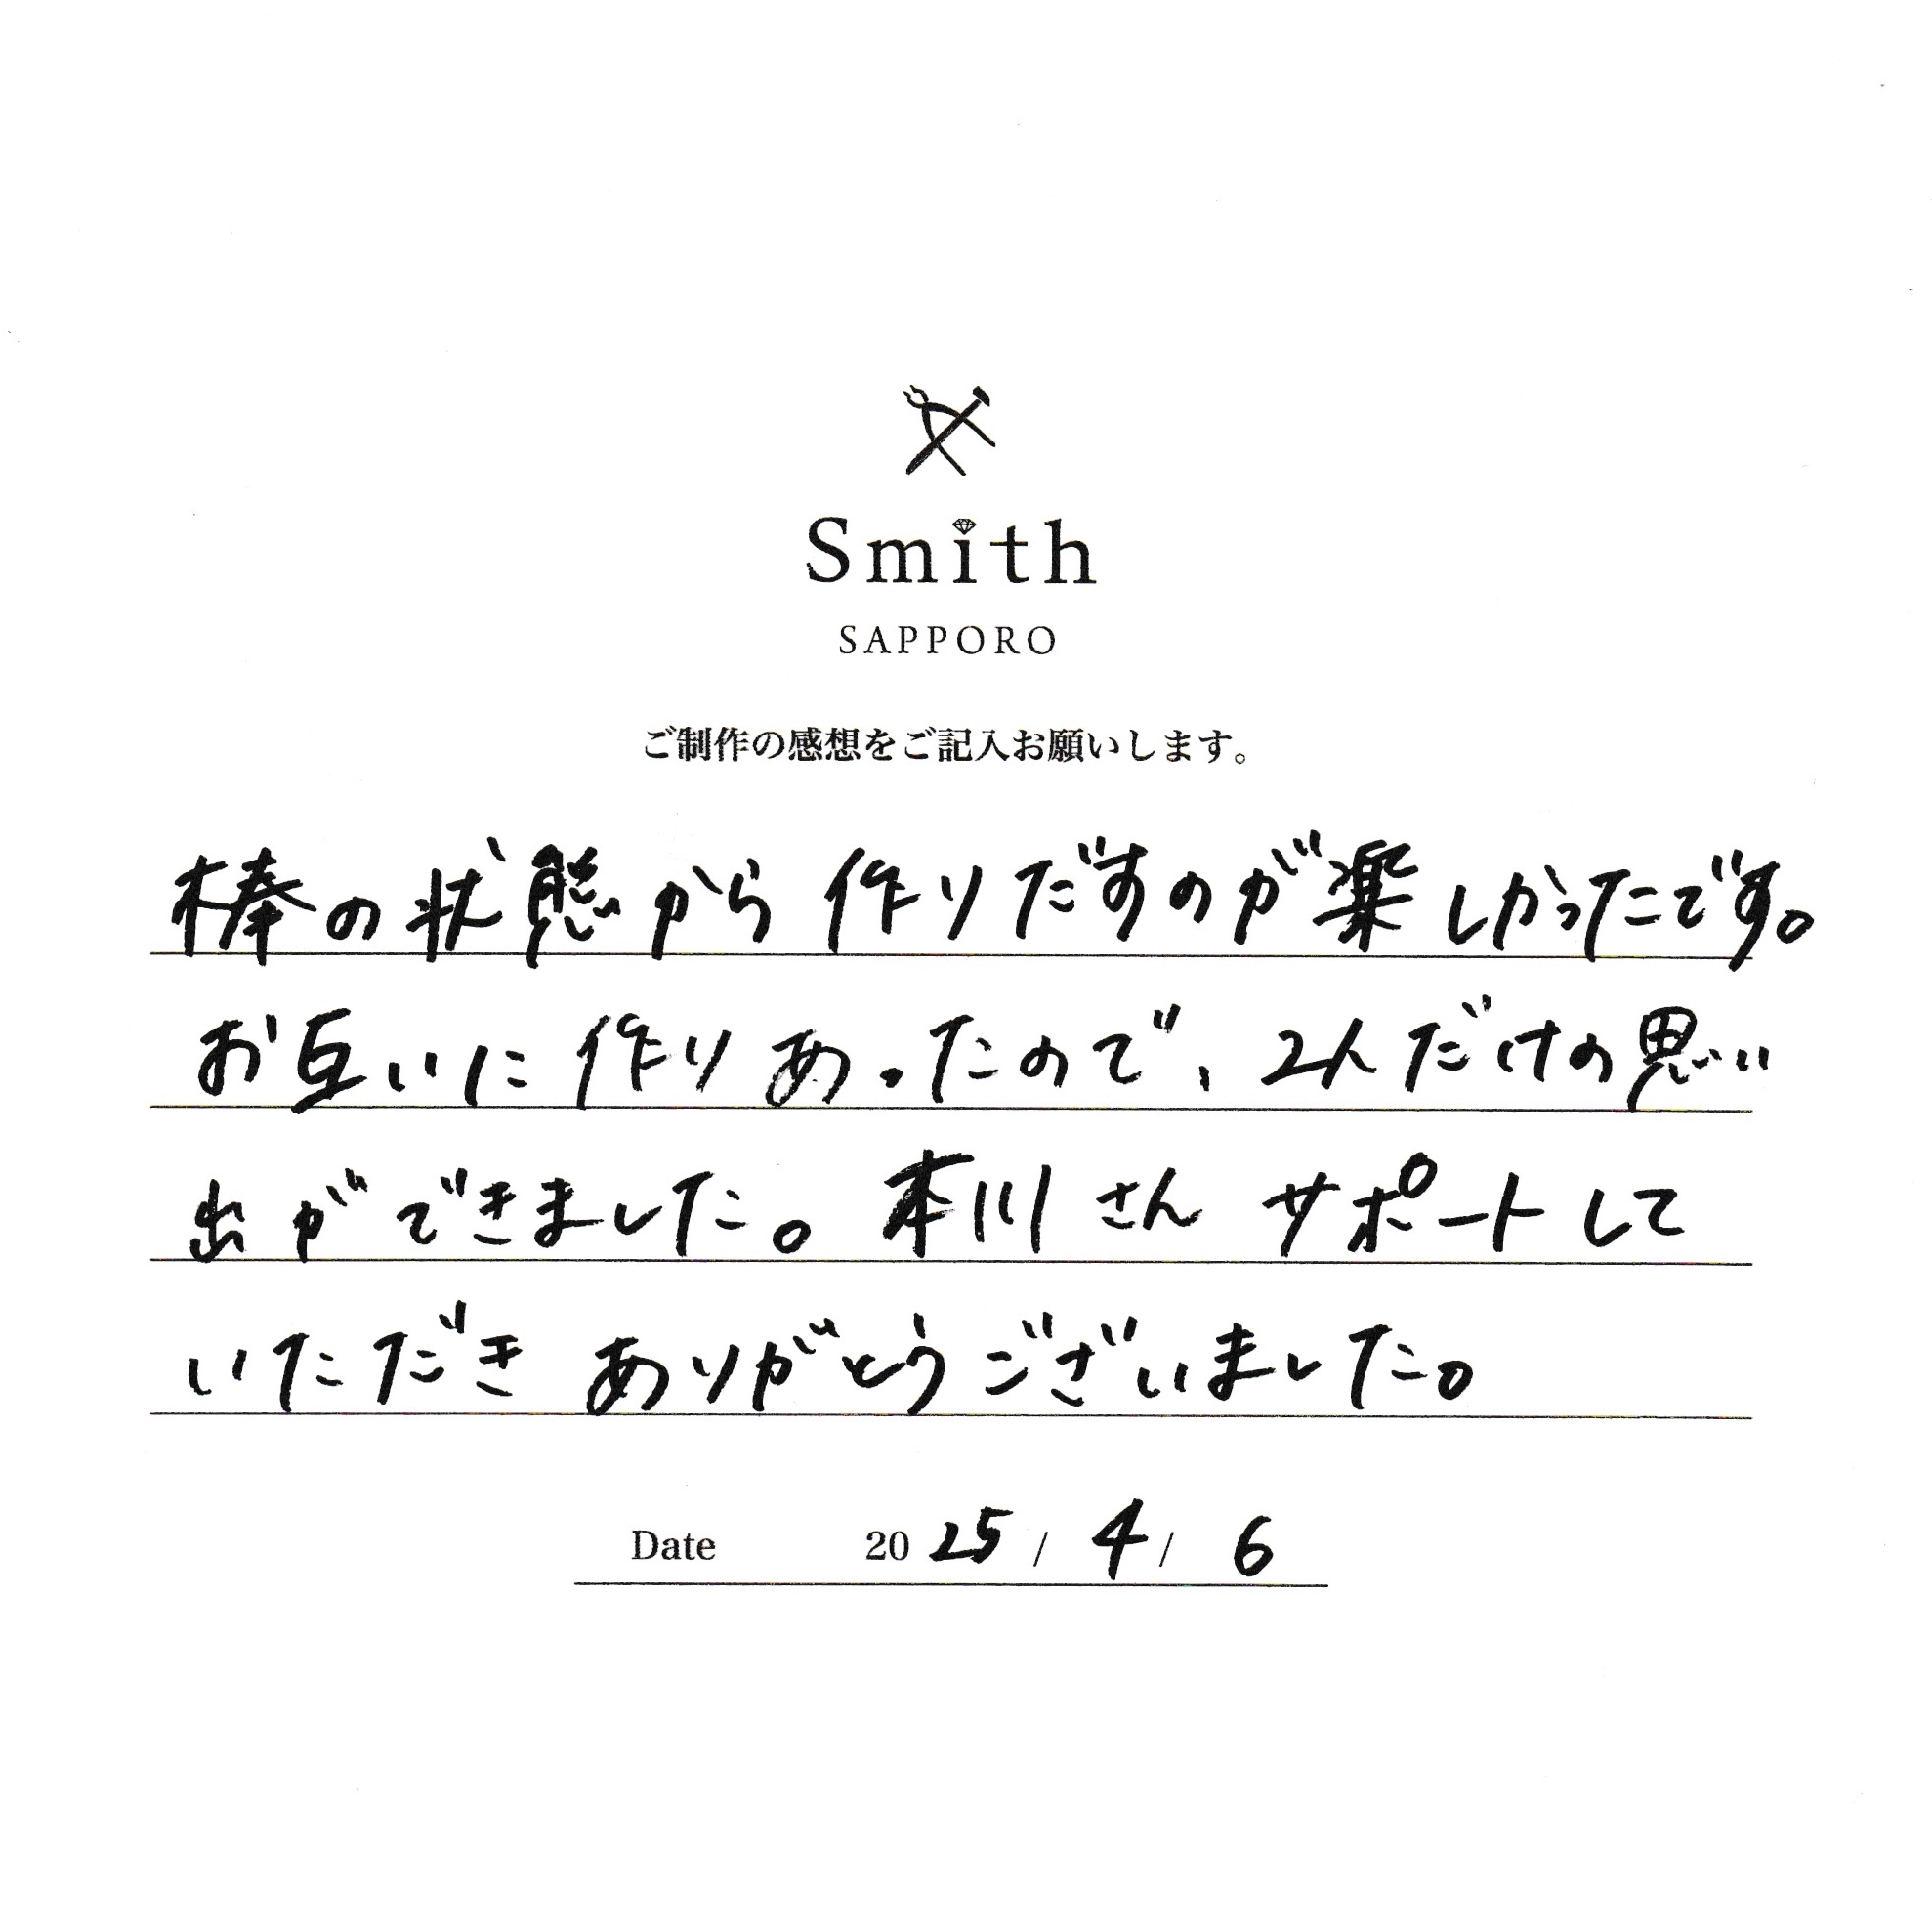 Smith
SAPPORO
ご制作の感想をご記入お願いします。
棒の状態から作りだすのが楽しかったです。
お互いに作りあったので、2人だけの思い
出ができました。本川さんサポートして
いただきありがとうございました。
Date 2025/4/6